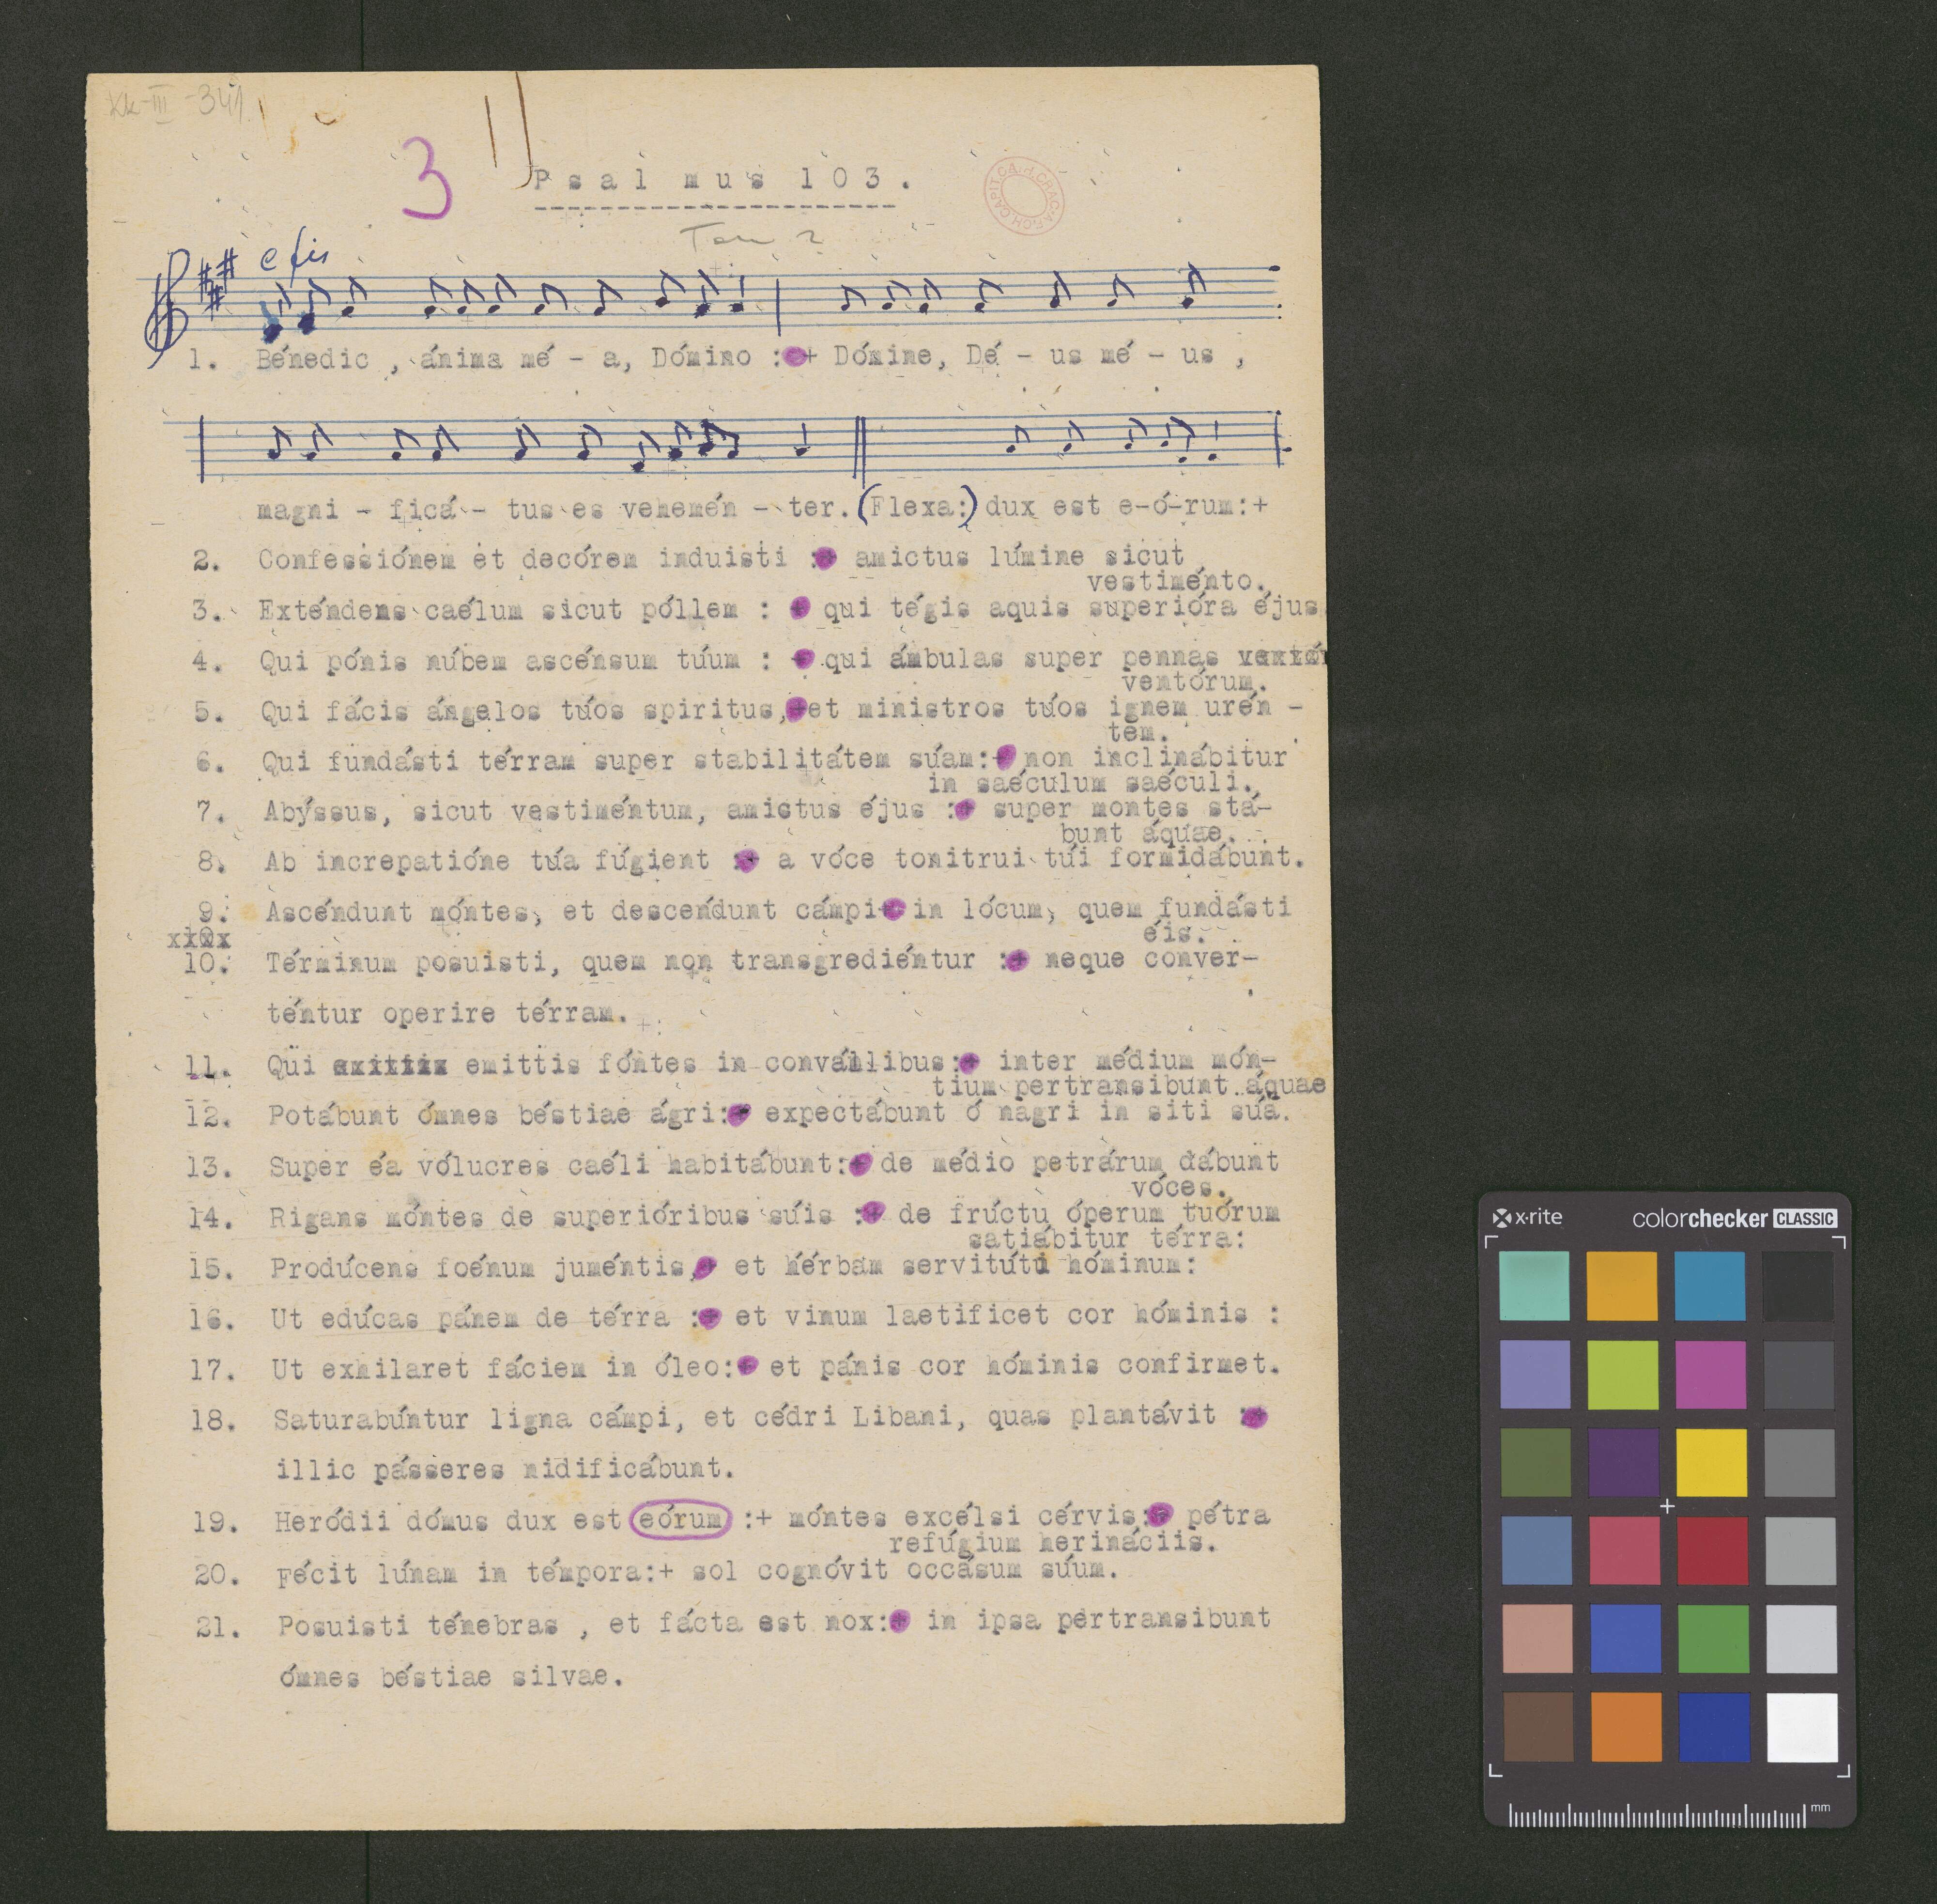 Kk-III-341
3
Psalmus 103.
Ton 2
ARCH.CAPIT.CAthd.CRAC.
e fis
1. Bénedic , ánima mé - a, Dómino :+ Dómine, Dé - us mé - us ,
magni - ficá - tus es vehemén - ter. (Flexa:) dux est e-ó-rum:+
2. Confessiónem et decórem induisti :+ amictus lúmine sicut
vestiménto.
3. Exténdens caélum sicut póllem : + qui tégis aquis superióra éjus
4. Qui pónis núbem ascénsum túum : + qui ámbulas super pennas
ventórum.
5. Qui fácis ángelos túos spiritus,+et ministros túos ignem urén -
tem.
6. Qui fundásti térram super stabilitátem súam:+ non inclinábitur
in saéculum saéculi.
7. Abýssus, sicut vestiméntum, amictus éjus :+ super montes stá-
bunt áquae.
8. Ab increpatióne túa fúgient :+ a vóce tonitrui túi formidábunt.
9. Ascéndunt móntes, et descendunt cámpi+ in lócum, quem fundásti
éis.
10. Términum posuisti, quem non transgrediéntur :+ neque conver-
téntur operire térram.
11. Qui emittis fóntes in convállibus:+ inter médium món-
tium pertransibunt áquae
12. Potábunt ómnes béstiae ágri:+ expectábunt ó nagri in siti súa.
13. Super éa vólucres caéli habitábunt:+ de médio petrárum dábunt
vóces.
14. Rigans móntes de superióribus súis :+ de frúctu óperum tuórum
satiábitur térra:
15. Prodúcens foénum juméntis,+ et hérbam servitúti hóminum:
16. Ut edúcas pánem de térra :+ et vinum laetificet cor hóminis :
17. Ut exhilaret fáciem in óleo:+ et pánis cor hóminis confirmet.
18. Saturabúntur ligna cámpi, et cédri Libani, quas plantávit :+
illic pásseres nidificábunt.
19. Heródii dómus dux est eórum :+ móntes excélsi cérvis:+ pétra
refúgium herináciis.
20. Fécit lúnam in témpora:+ sol cognóvit occásum súum.
21. Posuisti ténebras , et fácta est nox:+ in ipsa pertransibunt
ómnes béstiae silvae.
x-rite
colorchecker CLASSIC
mm